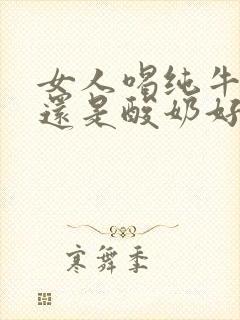 女人喝纯牛
還是酸奶好
寒舞季